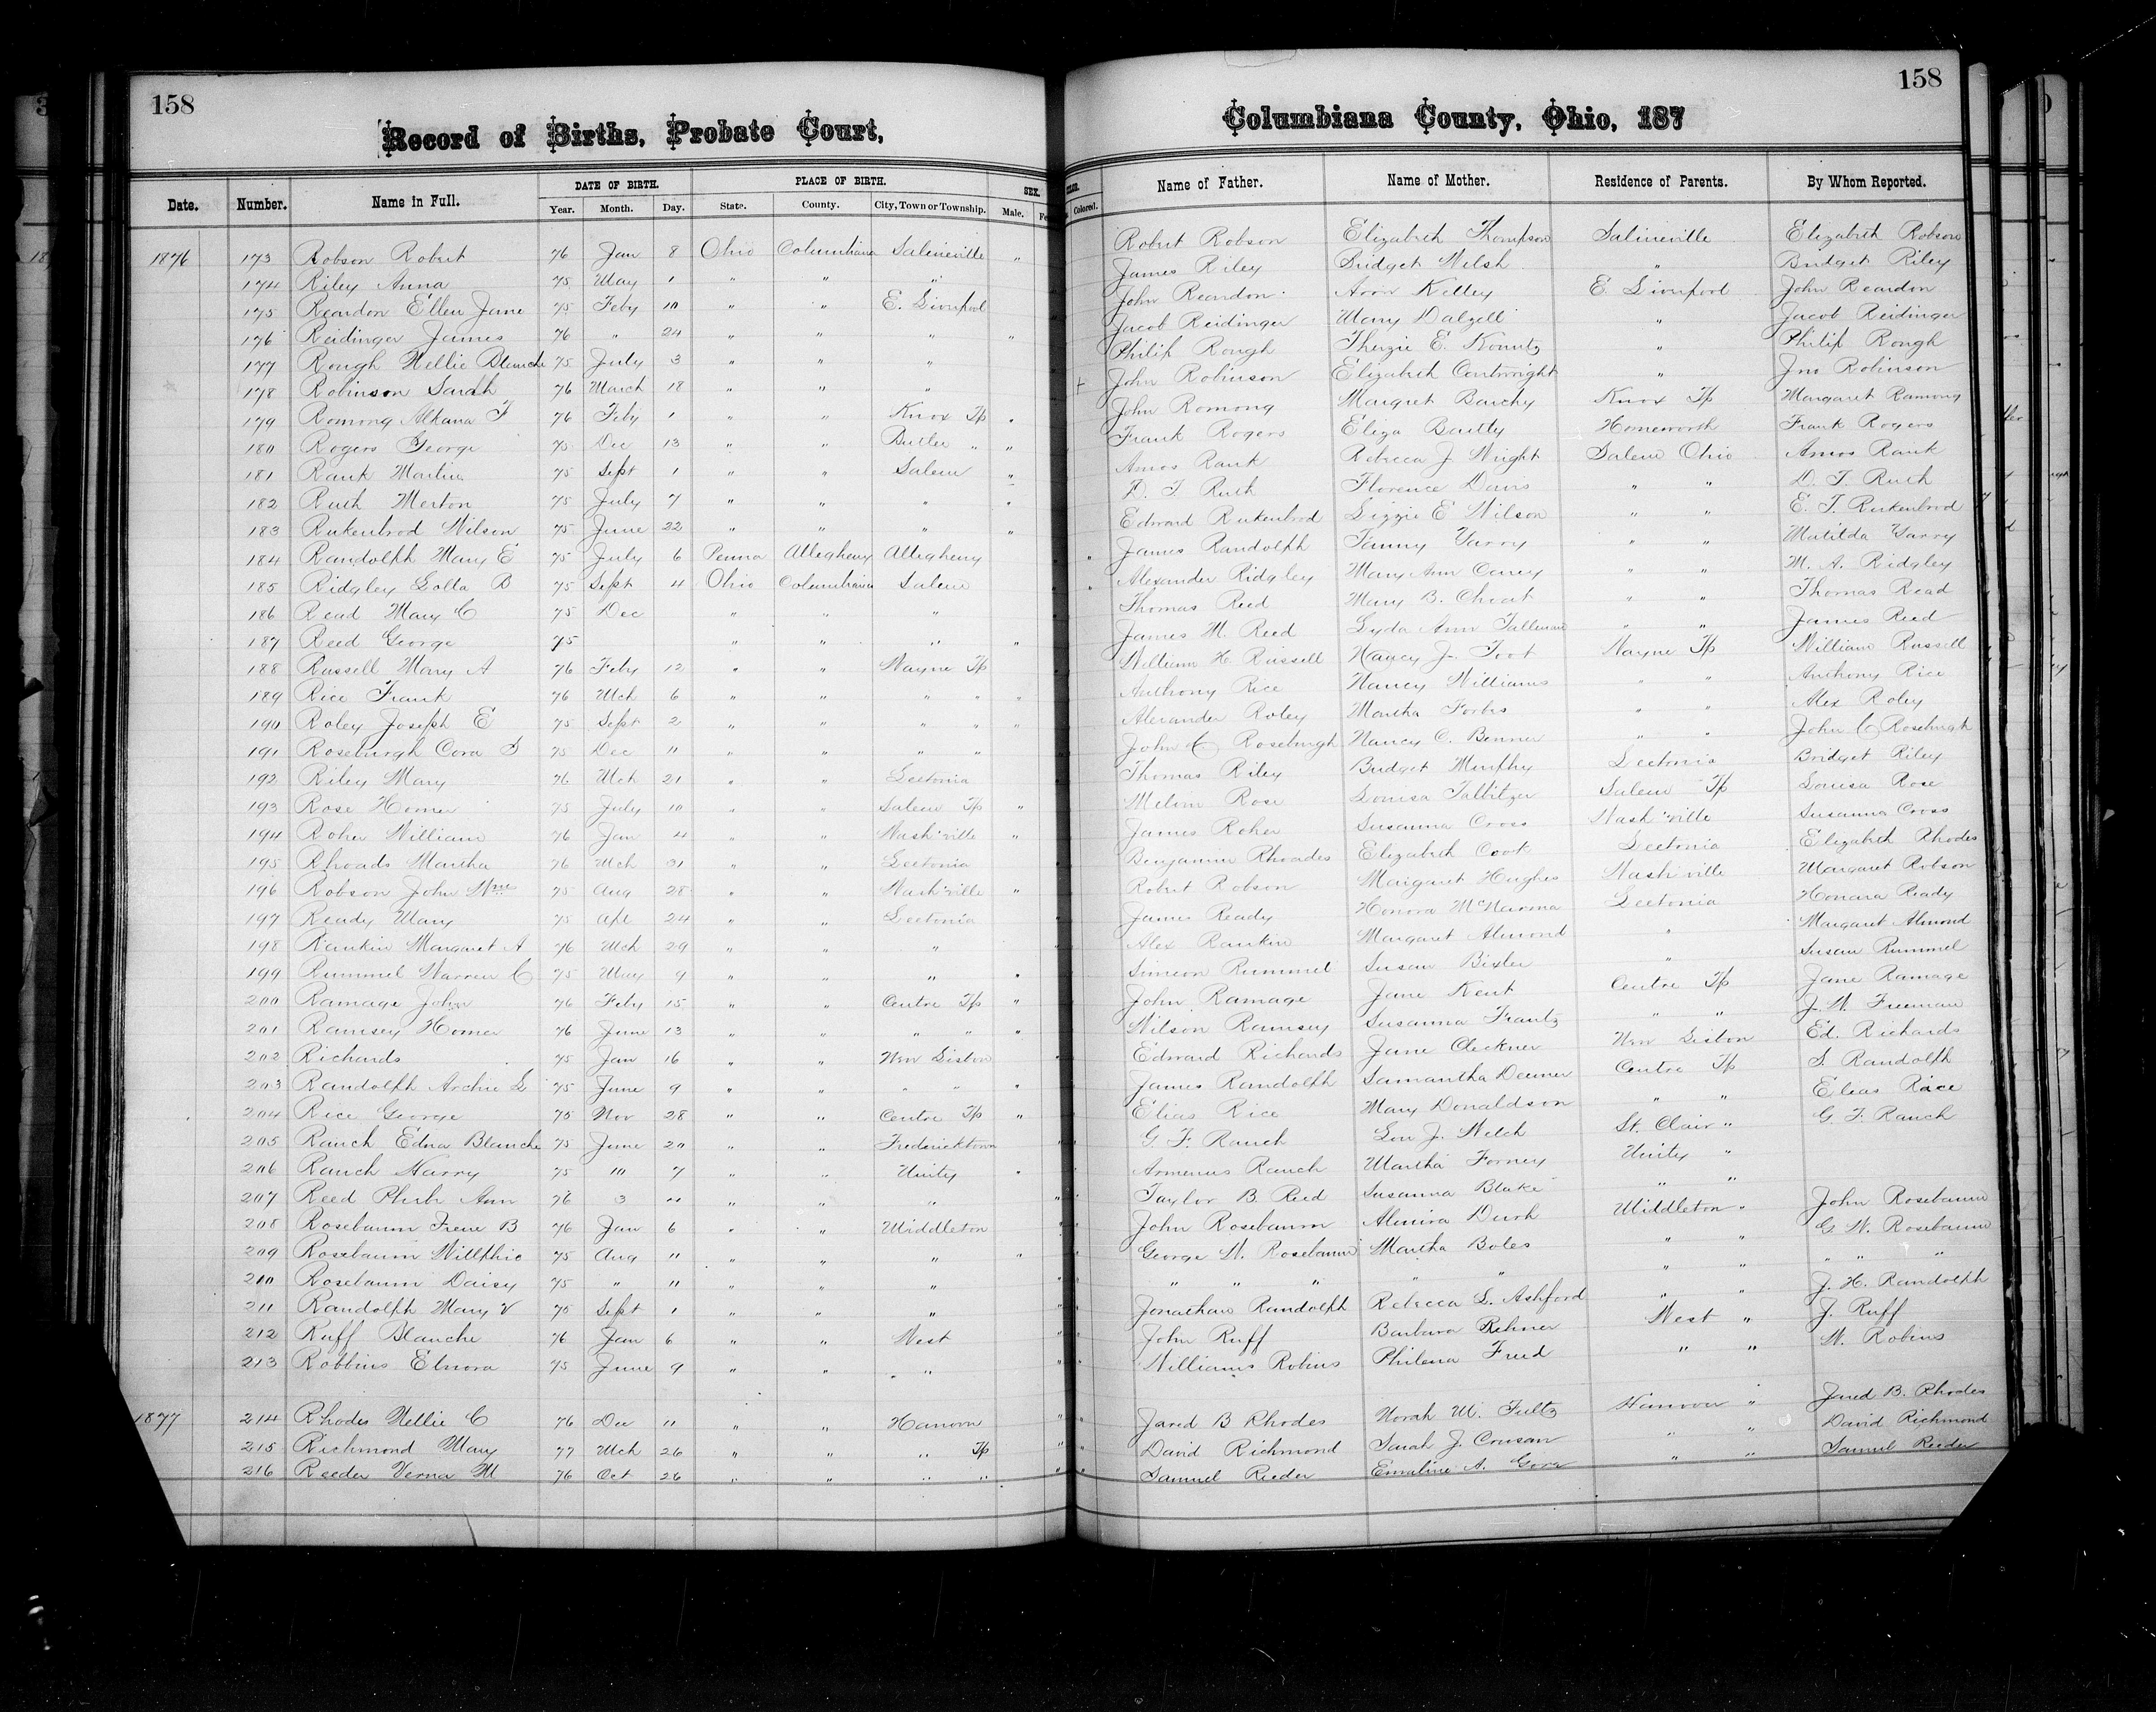 158
Record of Births, Probate Court,
158
Columbiana County, Ohio, 187
Date. Number. Name in Full. DATE OF BIRTH. Year. Month. Day. PLACE OF BIRTH. State. County. City, Town or Township. SEX. Male.
Colored. Name of Father. Name of Mother. Residence of Parents. By Whom Reported.
1876 173 Robson Robert 76 Jan 8 Ohio Columbiana Salineville " Robert Robson Elizabeth Thompson Salineville Elizabeth Robson
174 Riley Anna 75 May 1 " " " James Riley Bridget Welsh " Bridget Riley
175 Reardon Ellen Jane 75 Feby 10 " " E. Liverpool John Reardon Ann Kelley E. Liverpool John Reardon
176 Reidinger James 76 " 24 " " " " Jacob Reidinger Mary Dalzell " Jacob Reidinger
177 Rough Nellie Blanche 75 July 3 " " " Philip Rough E. Kountz " Philip Rough
178 Robinson Sarah 76 March 18 " " " + John Robinson Elizabeth Cartwright " Jno Robinson
179 Romong F 76 Feby 1 " " Knox Tp " John Romong Margret Barchy Knox Tp Margaret Ramong
180 Rogers George 75 Dec 13 " " Butler " " Frank Rogers Eliza Bailly Homeworth Frank Rogers
181 Rank Martin 75 Sept 1 " " Salem " Amos Rank Rebecca J. Wright Salem Ohio Amos Rank
182 Ruth Merton 75 July 7 " " " " D. T. Ruth Florence Davis " " D. T. Ruth
183 Rukenbrod Wilson 75 June 22 " " " " Edward Rukenbrod Lizzie E Wilson " " E. T. Rukenbrod
184 Randolph Mary E 75 July 6 Penna Allegheny Allegheny James Randolph Fanny Yarry " " Matilda Yarry
185 Ridgley Lolla B 75 Sept 4 Ohio Columbiana Salem Alexander Ridgley Mary Ann Carey " " M. A. Ridgley
186 Read Mary C 75 Dec " " " Thomas Reed Mary B. Choat " " Thomas Read
187 Reed George 75 " " " " James M. Reed Lyda Ann Talleman " " James Reed
188 Russell Mary A 76 Feby 12 " " Wayne Tp William H. Russell Nancy J. Foot Wayne Tp William Russell
189 Rice Frank 76 Mch 6 " " " " " Anthony Rice Nancy Williams " " Anthony Rice
190 Roley Joseph E 75 Sept 2 " " " " " Alexander Roley Martha Forbs " " Alex Roley
191 Roseburgh Cora S 75 Dec 11 " " " " John C Roseburgh Nancy C. Benner " " John C Roseburgh
192 Riley Mary 76 Mch 21 " " Leetonia Thomas Riley Bridget Murphy Leetonia Bridget Riley
193 Rose Homer 75 July 10 " " Salem Tp " Melvin Rose Louisa Talbitzer Salem Tp Louisa Rose
194 Roher William 76 Jan 4 " " Wash'ville " James Roher Susanna Cross Wash'ville Susanna Cross
195 Rhoads Martha 76 Mch 31 " " Leetonia Benjamin Rhoades Elizabeth Cook Leetonia Elizabeth Rhodes
196 Robson John Wm 75 Aug 28 " " Wash'ville " Robert Robson Margaret Hughes Wash'ville Margaret Robson
197 Ready Mary 75 Apl 24 " " Leetonia James Ready Honora McNamma Leetonia Honora Ready
198 Rankin Margaret A 76 Mch 29 " " " Alex Rankin Margaret Almond " Margaret Almond
199 Rummel Warren C 75 May 9 " " " " Simeon Rummel Susan Bixler " Susan Rummel
200 Ramage John 76 Feby 15 " " Centre Tp " John Ramage Jane Kent Centre Tp Jane Ramage
201 Ramsey Homer 76 June 13 " " " " " Wilson Ramsey Susanna Frantz " " J. W. Freeman
202 Richards 75 Jan 16 " " New Lisbon Edward Richards Jane Cleckner New Lisbon Ed. Richards
203 Randolph Archie L 75 June 9 " " " " " James Randolph Samantha Deemer Centre Tp S. Randolph
204 Rice George 75 Nov 28 " " Centre Tp " Elias Rice Mary Donaldson " " Elias Rice
205 Rauch Edna Blanche 75 June 20 " " Fredericktown G. F. Rauch Lou J. Welch St. Clair " G. F. Rauch
206 Rauch Harry 75 10 7 " " Unity " Armenus Rauch Martha Forney Unity "
207 Reed Pheb Ann 76 3 " " " " Taylor B. Reed Susanna Blake " "
208 Rosebaum Irene B 76 Jan 6 " " Middleton John Rosebaum Almira Durh Middleton " John Rosebaum
209 Rosebaum Willphie 75 Aug 11 " " " " George W. Rosebaum Martha Boles " " G. W. Rosebaum
210 Rosebaum Daisy 75 " 11 " " " " " " " " " " " "
211 Randolph Mary V 75 Sept 1 " " " Jonathan Randolph Rebecca L. Ashford " " J. H. Randolph
212 Ruff Blanche 76 Jan 6 " " West John Ruff Barbara Rehner West " J. Ruff
213 Robbins Elnora 75 June 9 " " " Williams Robins Philena Freed " " W. Robins
1877 214 Rhodes Nellie C 76 Dec 11 " " Hanover Jared B Rhodes Norah M. Fultz Hanover " Jared B. Rhodes
215 Richmond Mary 77 Mch 26 " " " Tp David Richmond Sarah J. Crusan " " David Richmond
216 Reeder Verna M 76 Oct 26 " " " " Samuel Reeder Emaline A. " " Samuel Reeder